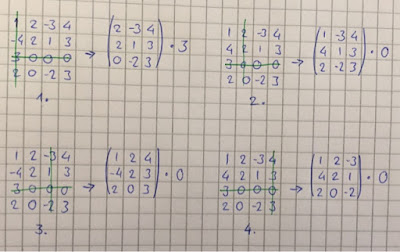 1 2 -3 4
-4 2 1 3
3 0 0 0
2 0 -2 3
→
2 -3 4
2 1 3
0 -2 3
· 3
1.
1 2 -3 4
4 2 1 3
3 0 0 0
2 0 -2 3
→
1 -3 4
4 1 3
2 -2 3
· 0
2.
1 2 -3 4
-4 2 1 3
3 0 0 0
2 0 -2 3
→
1 2 4
-4 2 3
2 0 3
· 0
3.
1 2 -3 4
4 2 1 3
3 0 0 0
2 0 -2 3
→
1 2 -3
4 2 1
2 0 -2
· 0
4.